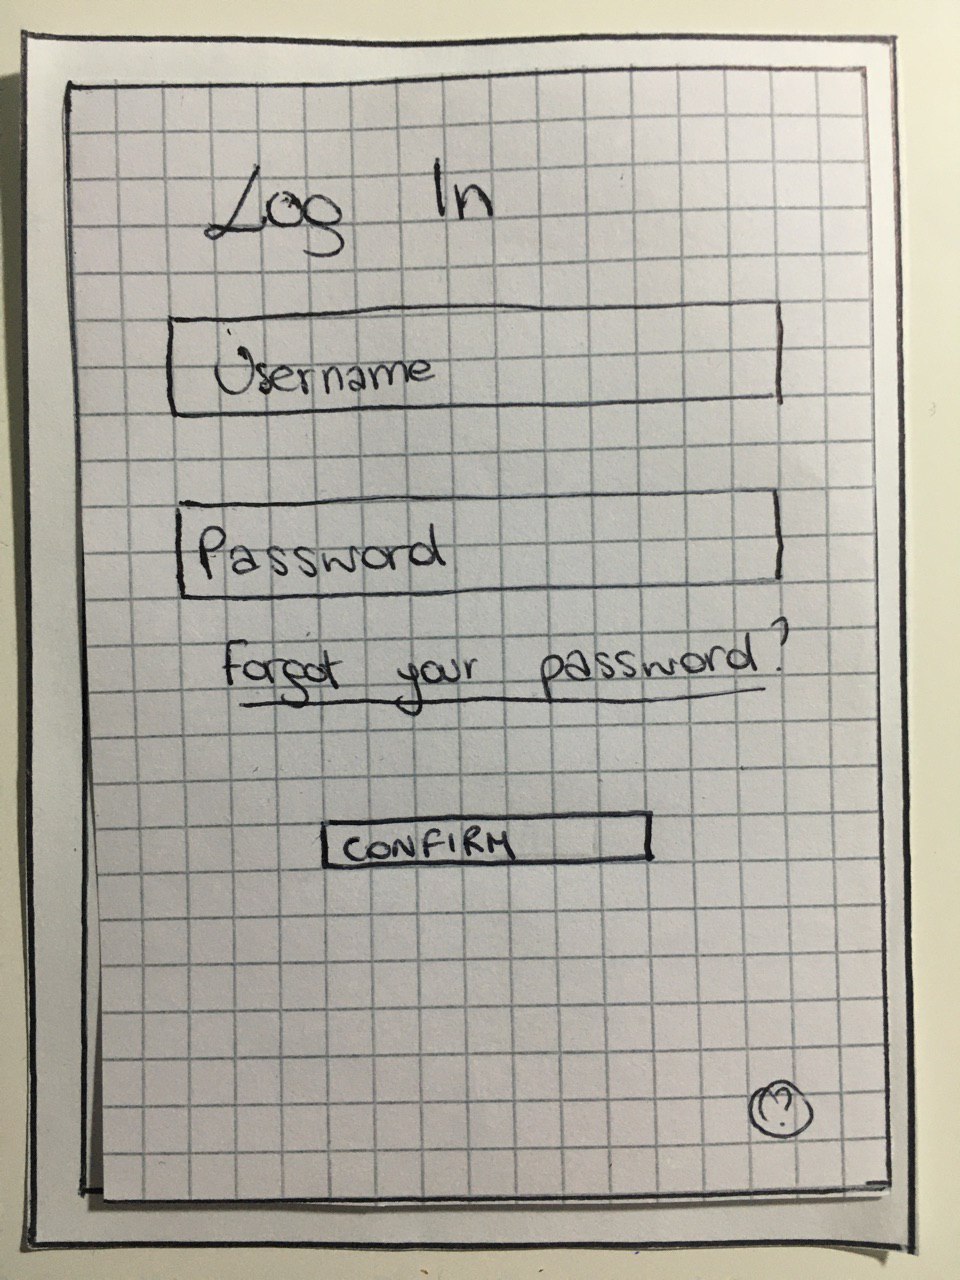 Log In
Username
Password
Forgot your password?
CONFIRM
?